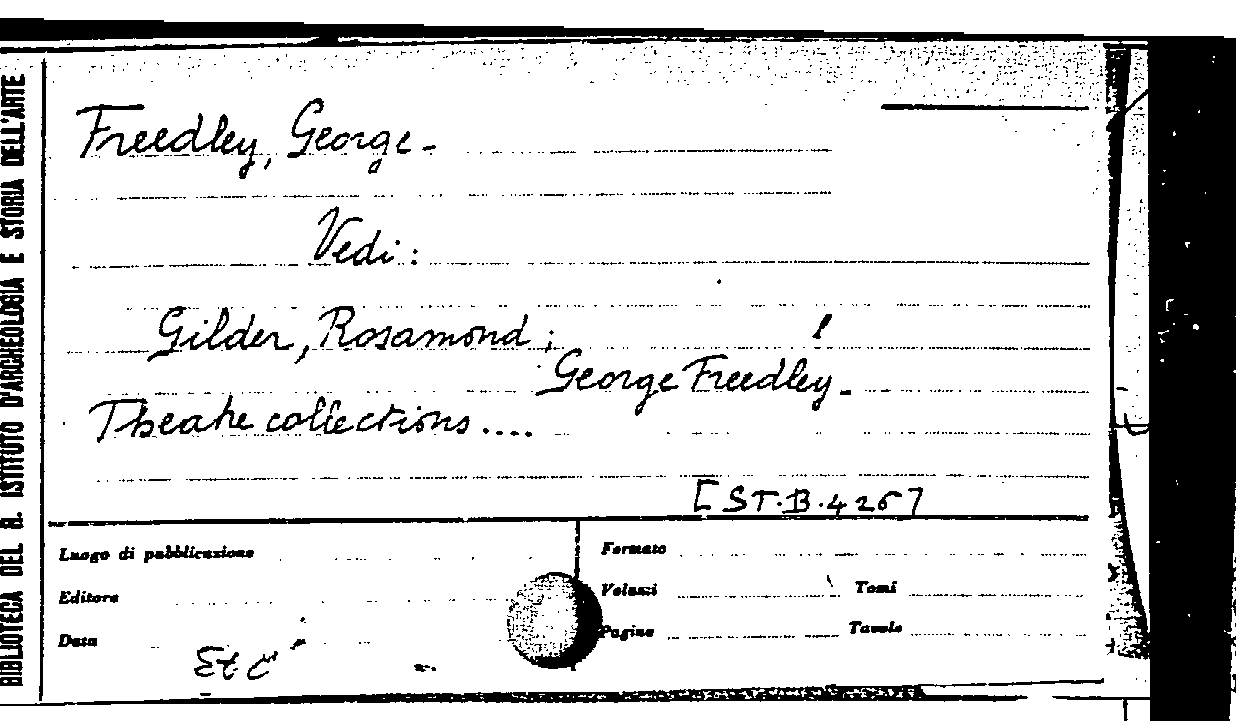 BIBLIOTECA DEL R. ISTITUTO D'ARCHEOLOGIA E STORIA DELL'ARTE
Freedley, George -
Vedi :
Gilder, Rosamond ;
George Freedley -
Theatre collections ....
[ST.B.426]
Luogo di pubblicazione
Editore
Data
Etc
Formato
Volumi Tomi
Pagine Tavole